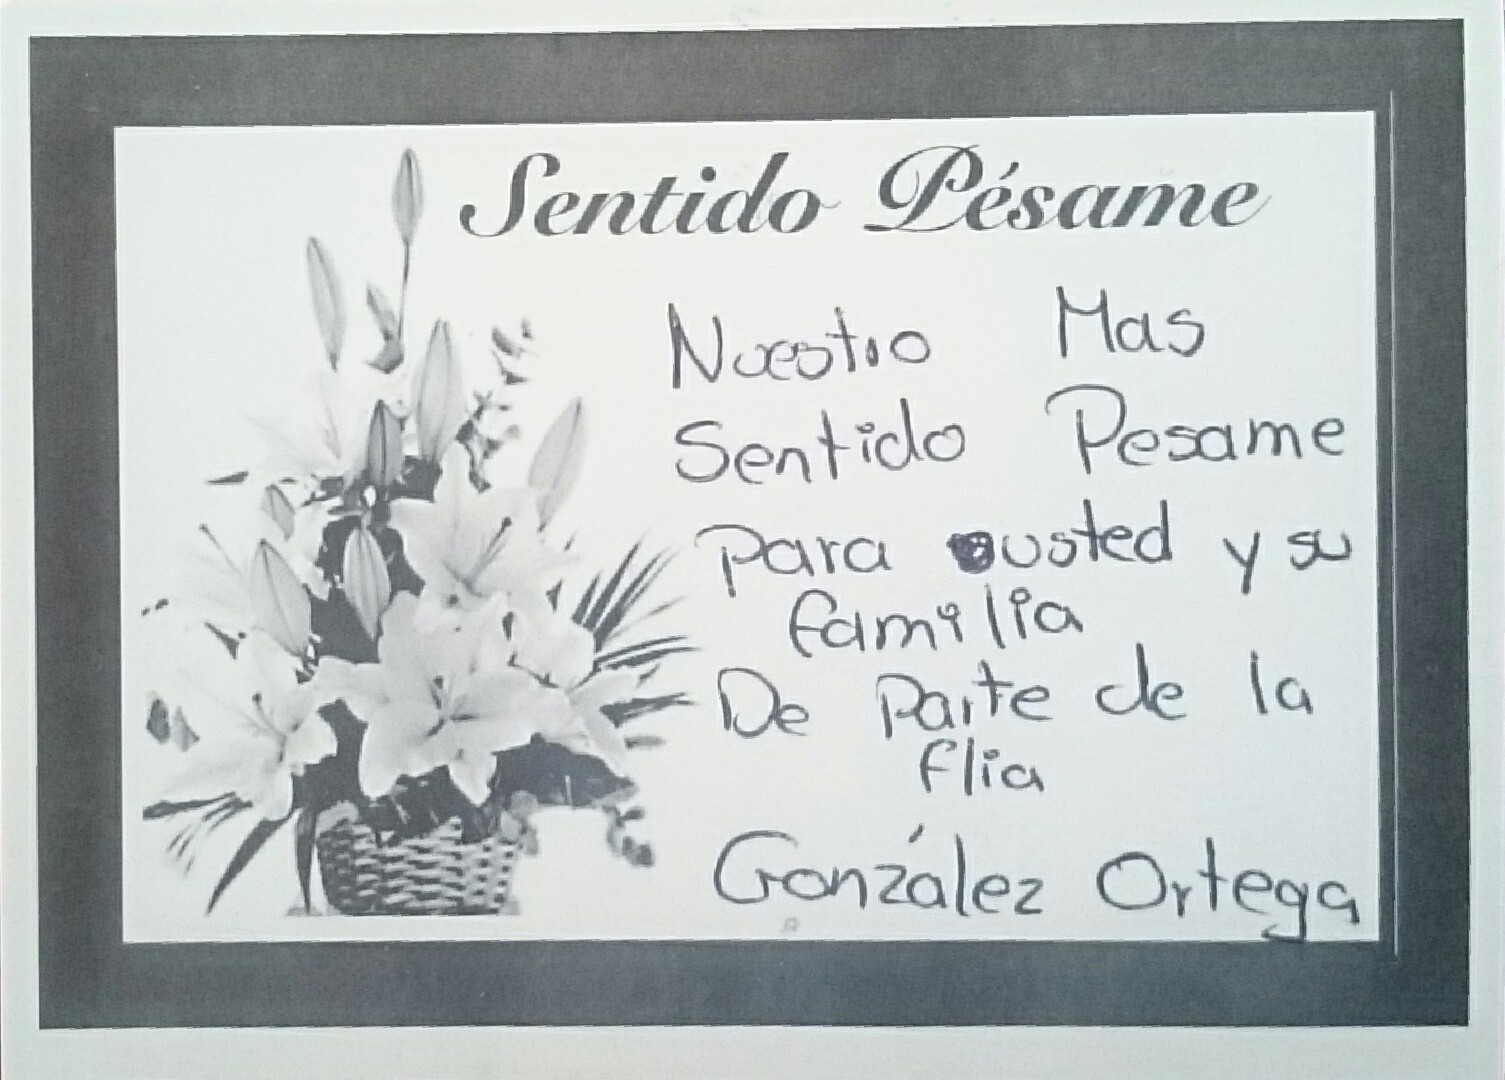 Sentido Pésame
Nuestro Mas
Sentido Pesame
Para usted y su
familia
De Parte de la
flia
González Ortega